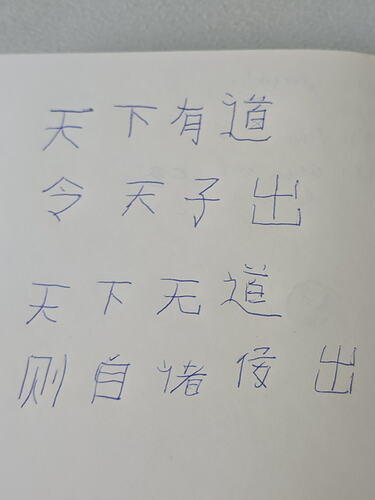 天下有道
令天子出
天下无道
则自诸侯出